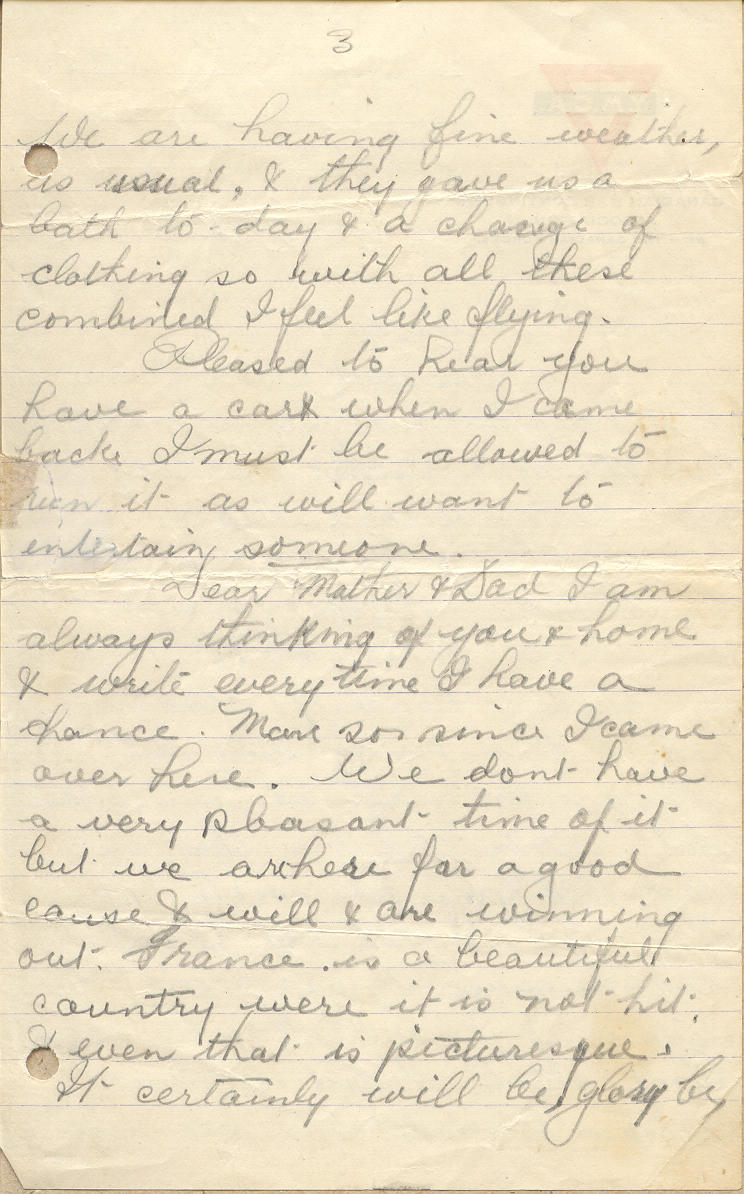 3
We are having fine weather,
as usual, & they gave us a
bath to-day & a change of
clothing so with all these
combined I feel like flying.
Pleased to hear you
have a car & when I come
back I must be allowed to
run it as will want to
entertain someone.
Dear Mother & Dad I am
always thinking of you & home
& write everytime I have a
chance. More so since I came
over here. We dont have
a very pleasant time of it
but we are here for a good
cause & will & are winning
out. France is a beautiful
country were it is not hit.
& even that is picturesque.
It certainly will be, glory be,